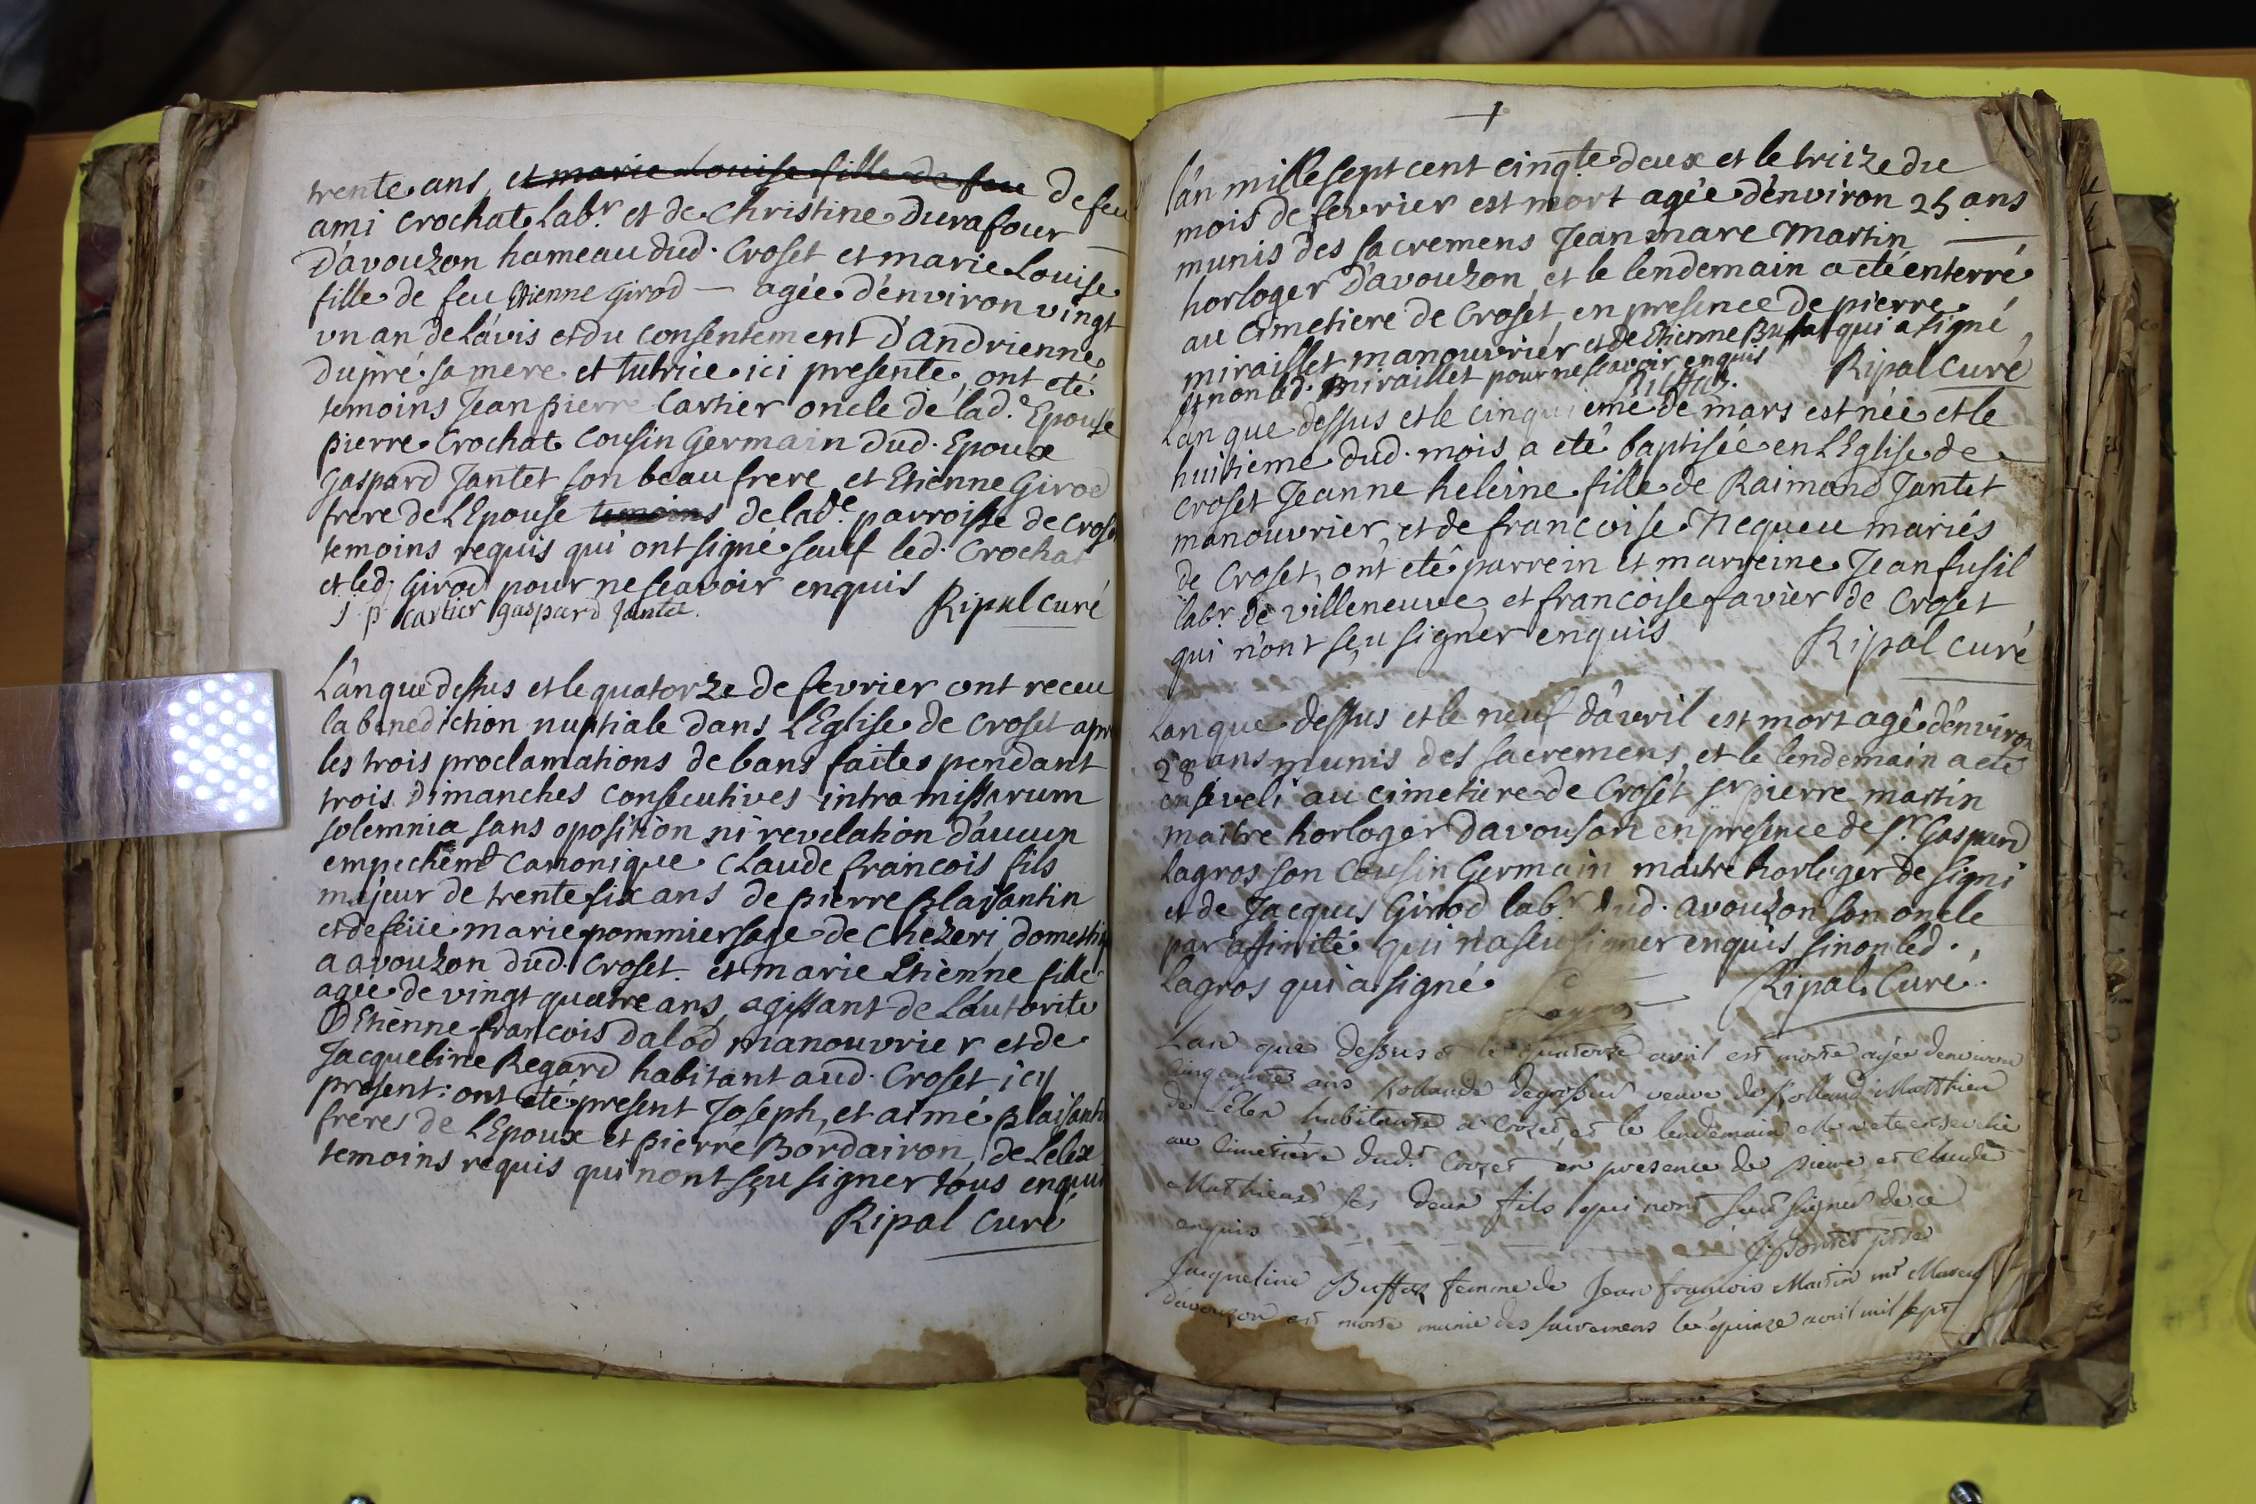 trente ans, et marie Louise fille de feu de feu
ami Crochat Labr. et de Christine Durafour
D'avouzon hameau dud. Croset et marie Louise
fille de feu Etienne Girod — agée d'énviron vingt
un an de l'avis et du consentement D'andrienne
Dupré sa mere et tutrice ici presente, ont eté
temoins Jean pierre Cartier oncle de lad.e Epouse
pierre Crochat Cousin Germain dud. Epoux
Gaspard Jantet son beau frere et Etienne Girod
frere de L'Epouse temoins de lad.e parroisse de Croset
temoins requis qui ont signé sauf led. Crochat
et led. Girod pour ne scavoir enquis
J p Cartier gaspard Jantet. Ripal curé
L'an que dessus et le quatorze de fevrier ont receu
la benediction nuptiale dans L'Eglise de Croset apr
les trois proclamations de bans faites pendant
trois Dimanches Consecutives intra missarum
solemnia sans oposition ni revelation d'aucun
empechemt Canonique Claude francois fils
majeur de trente six ans de pierre plaisantin
et de feüe marie pommier sage de Chézeri, domestiq
a avouzon dud. Croset et marie Etiènne fille
agée de vingt quatre ans, agissant de L'autorite
D'Etiènne francois Dalod manouvrier et de
Jacqueline Regard habitant aud. Croset icy
present: ont eté present Joseph, et aimé plaisanti
freres de L'Epoux et pierre Bordairon, de Lelex
temoins requis qui nont sçu signer tous enquis
Ripal Curé
l'an mille sept cent cinqte deux et le treize du
mois de fevrier est mort agée d'énviron 25 ans
munis des sacremens Jean marc Martin
horloger D'avouzon, et le lendemain a eté enterré
au Cimetiere de Croset en presence de pierre
miraillet manouvrier et de Etienne Buffat qui a signé
et non led. miraillet pour ne scavoir enquis Ripal curé
L'an que dessus et le cinquieme de mars est née et le
huitieme dud. mois a eté baptisée en L'Eglise de
Croset Jeanne heleine fille de Raimond Jantet
manouvrier, et de francoise Nequeu mariés
de Croset, ont eté parrein et marreine Jean fusil
labr. de villeneuve et francoise favier de Croset
qui n'ont sçu signer enquis Ripal curé
L'an que dessus et le neuf d'avril est mort agé d'énviron
28 ans munis des sacremens, et le lendemain a eté
enseveli au cimetiere de Croset sr pierre martin
maitre horloger davouson en presence de Sr. Gaspard
Lagros son Cousin Germain maitre horloger de Signi
et de Jacques Girod labr. dud. avouzon son oncle
par affinité qui n'a sceu signer enquis sinon led.
Lagros qui a signé. Ripal Curé.
Lagros
L'an que dessus et le quatorze avril est morte agée denviron
cinquante ans Rollande degrossu veuve de Rolland Matthieu
de Lélex habitante a Crozet, et le lendemain elle a ete ensevelie
au Cimetière dudt. Crozet en presence de pierre et Claude
Mathieu ses deux fils qui nont sceu signer de ce
enquis
Jacqueline Buffat femme de Jean françois Martin mt
d'avouzon est morte munie des sacremens le quinze avril mil sept